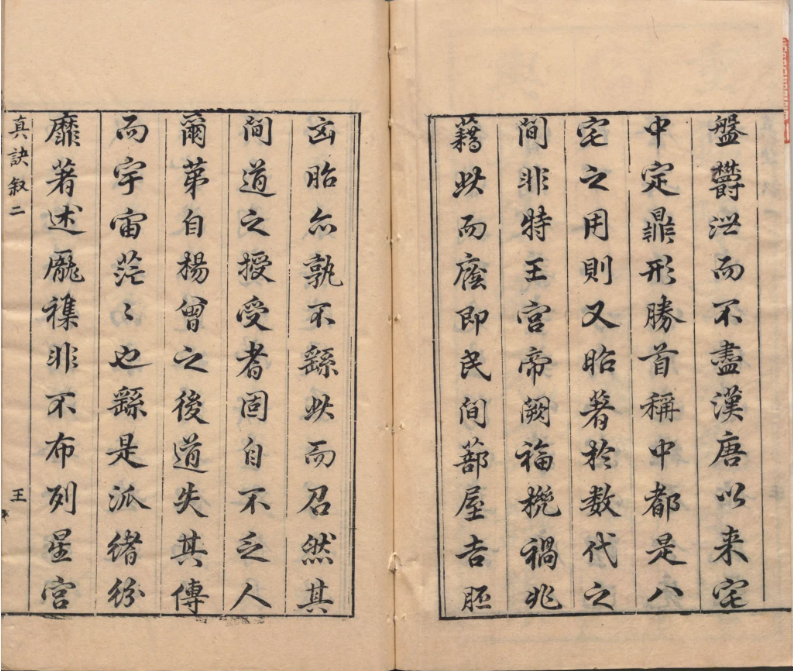 盤欝泄而不盡漢唐以来宅
中定鼎形勝首稱中都是八
宅之用則又昭著於数代之
間非特王宫帝阙福梲禍兆
藉此而癊即民间蔀屋吉胚
㐫眙亦孰不繇此而召然其
间道之授受者固自不乏人
爾苐自楊曾之後道失其傳
而宇宙茫〻也繇是派緒紛
靡著述厖襍非不布列星宫
真訣叙二
王